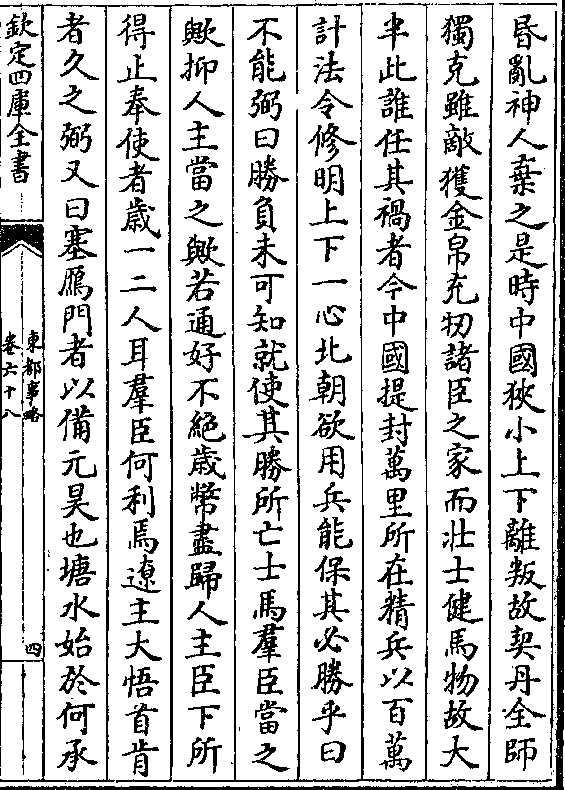 昬亂神人棄之是時中國狹小上下離叛故契丹全師
獨克雖敵獲金帛充牣諸臣之家而壮士健馬物故大
半此誰任其禍者今中國提封萬里所在精兵以百萬
計法令修明上下一心北朝欲用兵能保其必勝乎曰
不能弼曰勝負未可知就使其勝所亡士馬羣臣當之
歟抑人主當之歟若通好不絶歳幣盡歸人主臣下所
得止奉使者歳一二人耳羣臣何利焉遼主大悟首肯
者久之弼又曰塞鴈門者以備元昊也塘水始於何承
欽定四庫全書
東都事略
卷六十八
四